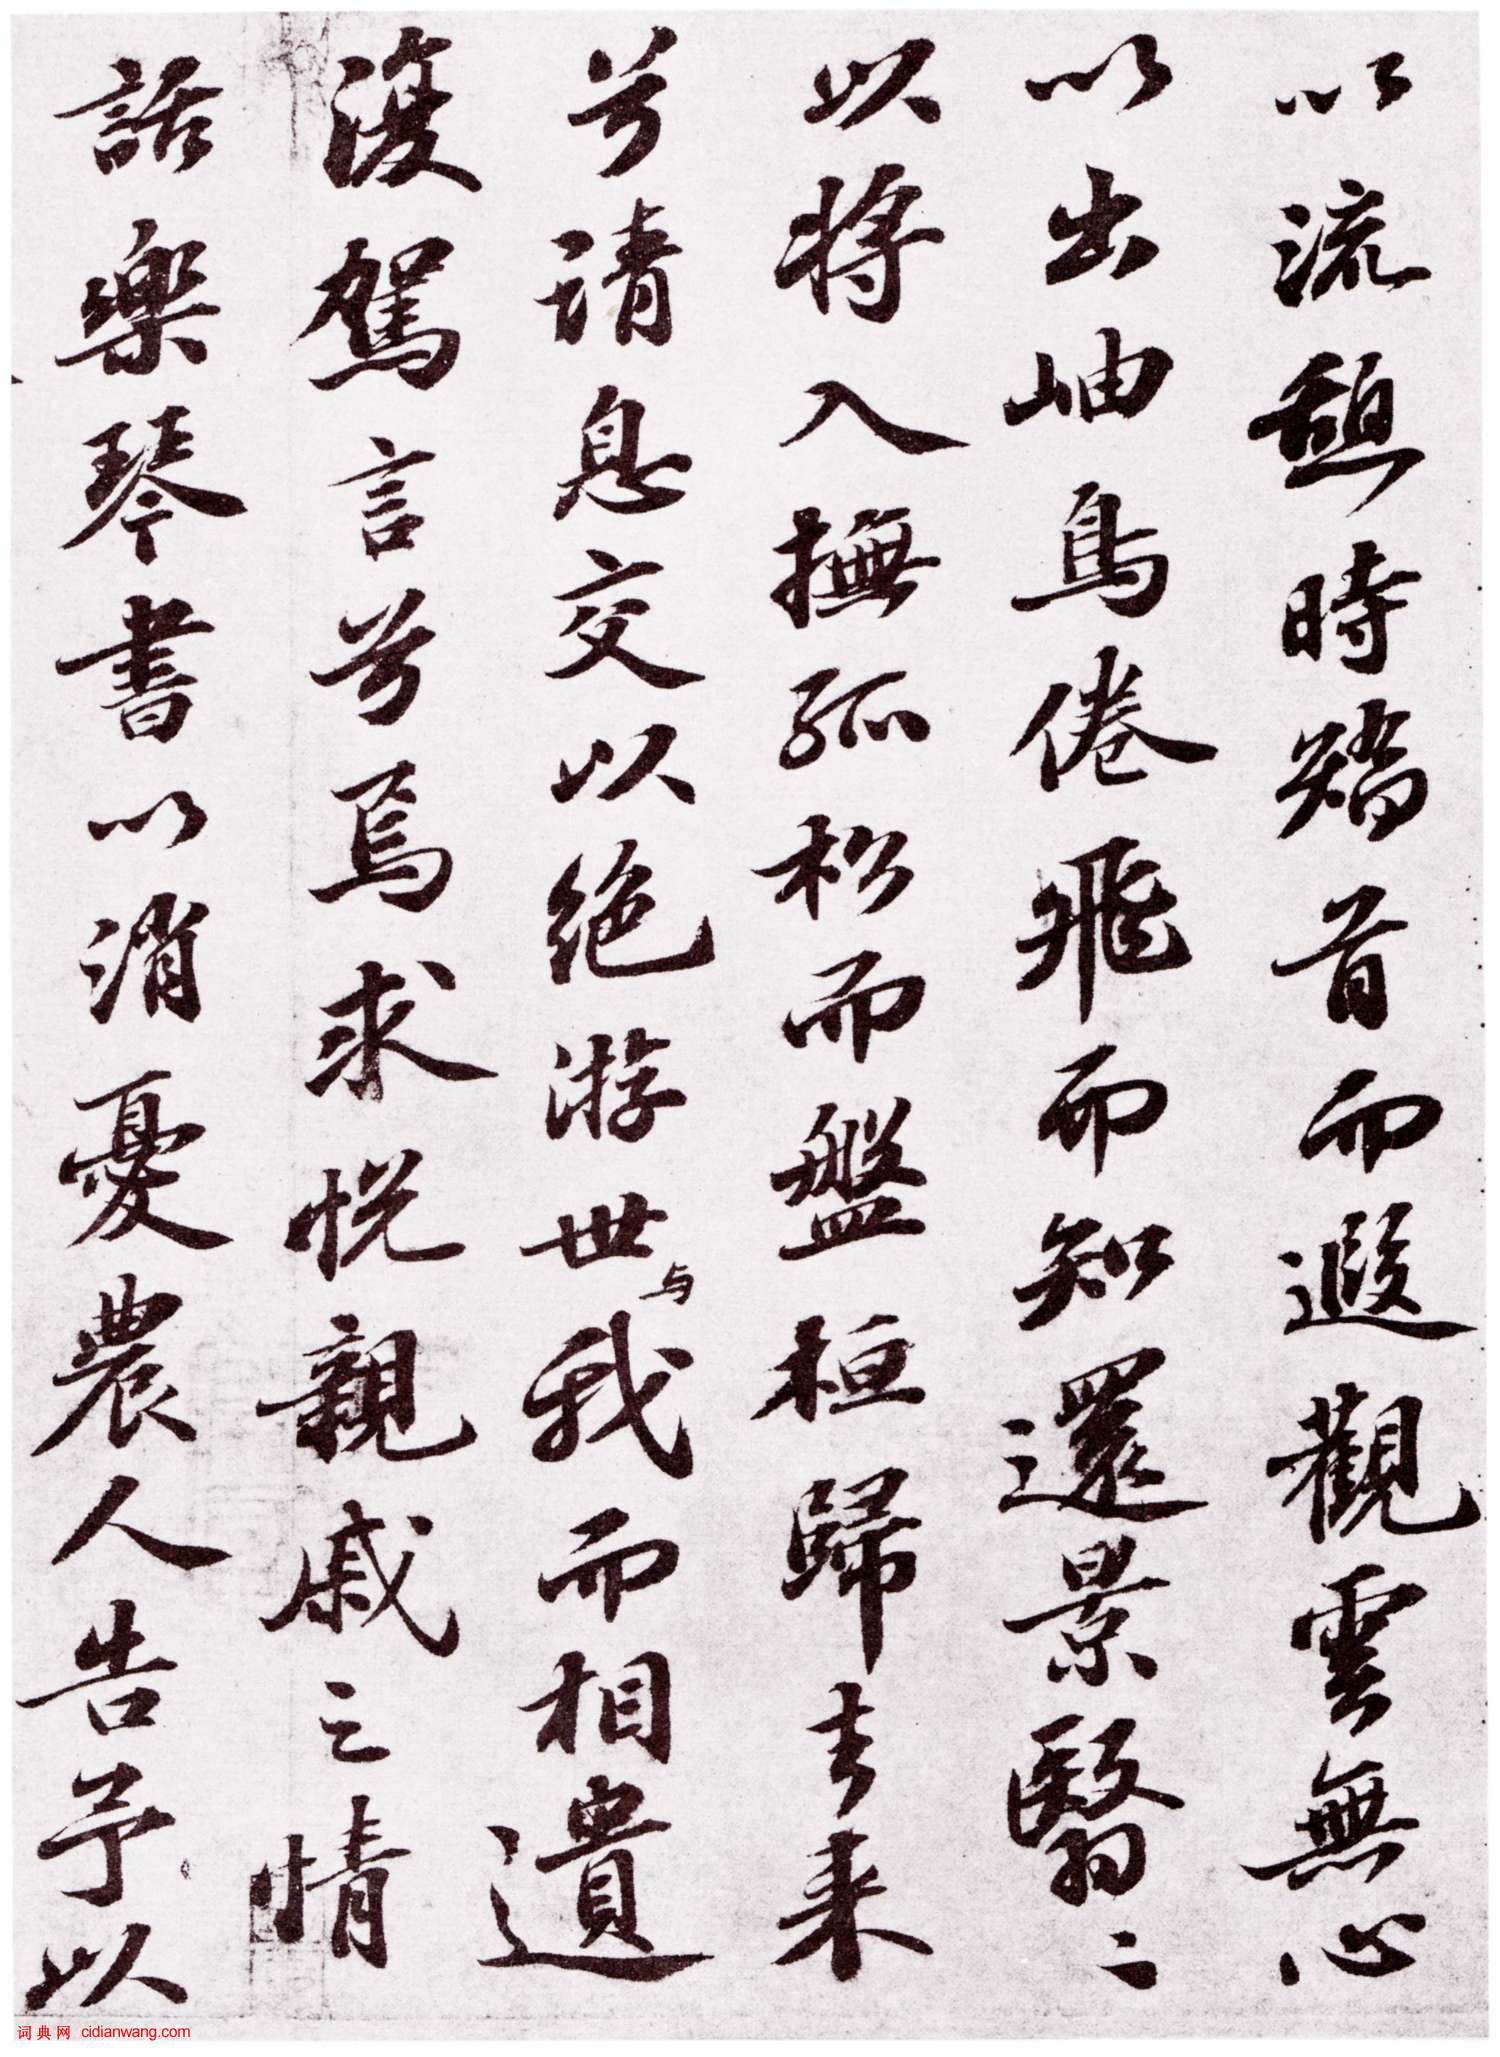 以流憩時矯首而遐觀雲無心
以出岫鳥倦飛而知還景翳二
以將入撫孤松而盤桓歸去来
兮請息交以绝游世与我而相遺
復駕言兮焉求悦親戚之情
話樂琴書以消憂農人告予以
词典网 cidianwang.com